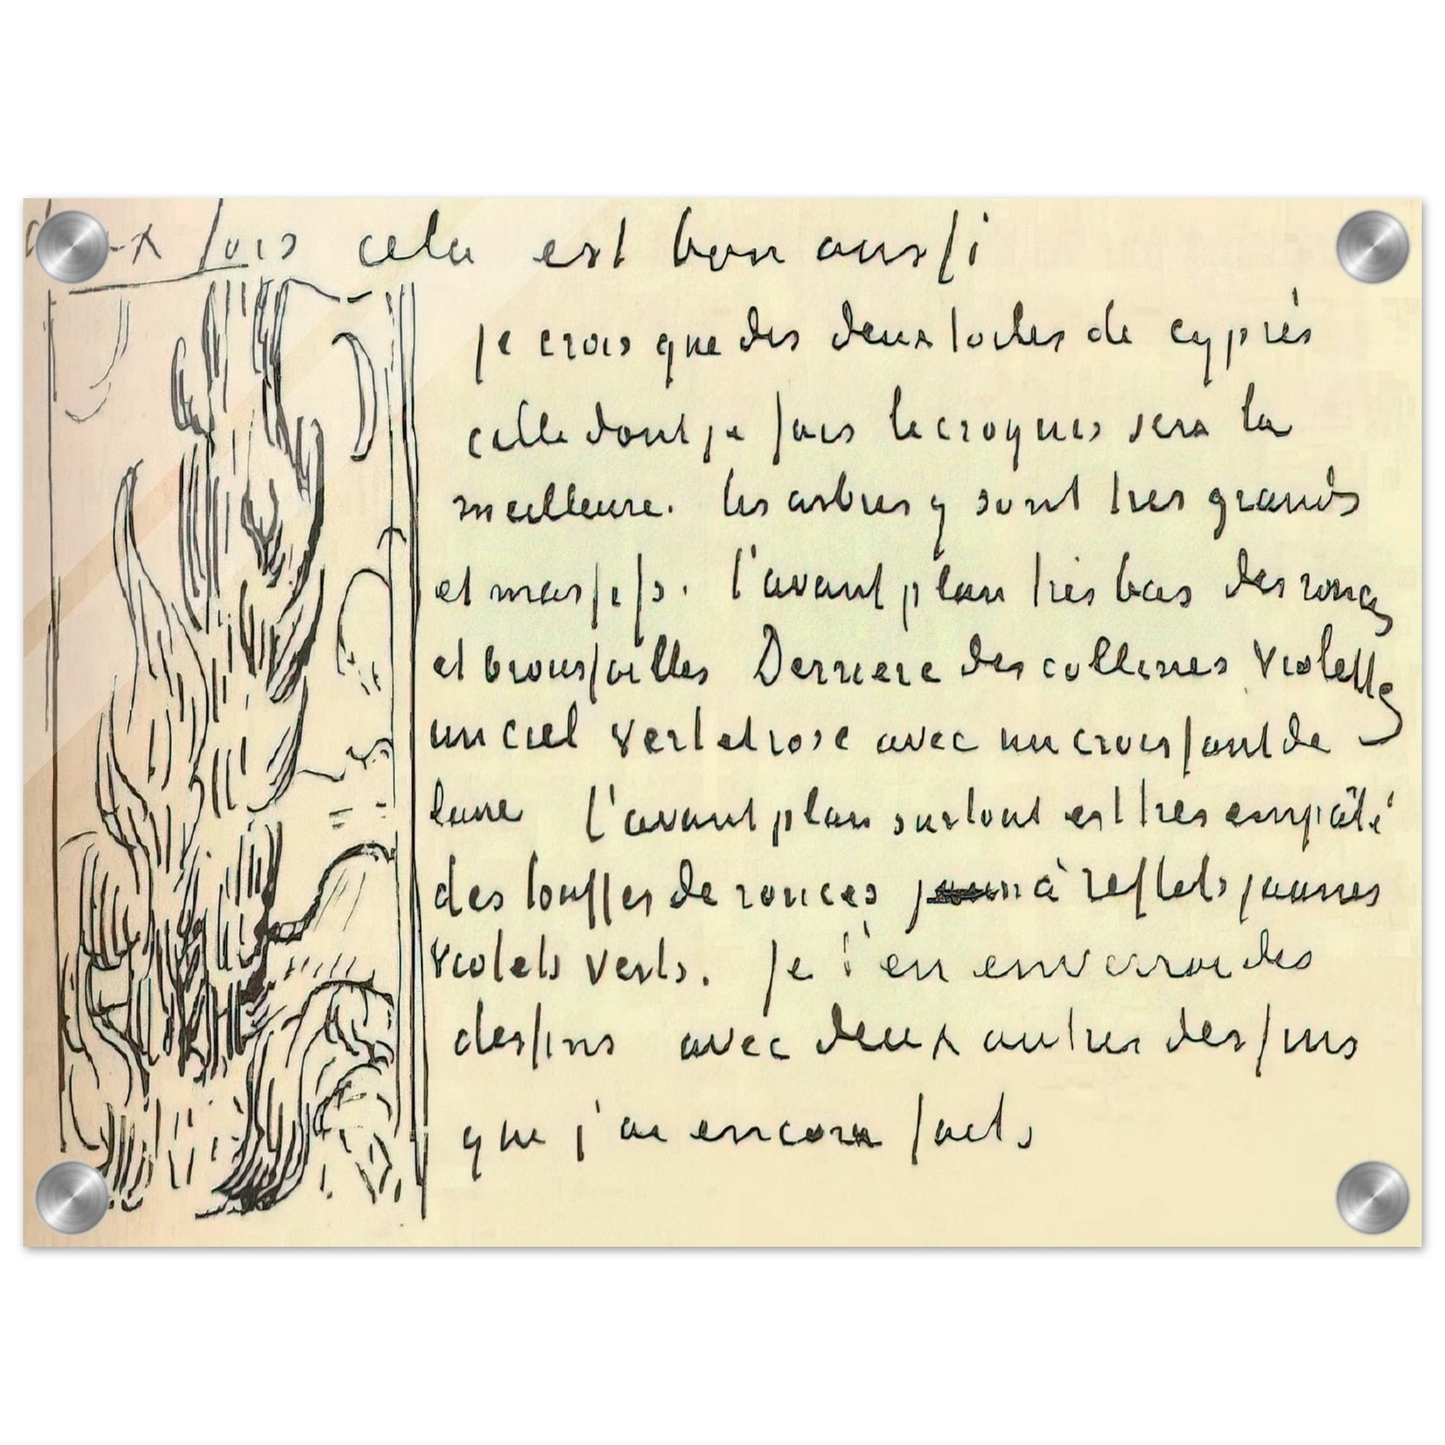 deux fois cela est bon aussi
je crois que des deux toiles de cyprès
celle dont je fais le croquis sera la
meilleure. les arbres y sont tres grands
et massifs. l'avant plan très bas des ronces
et broussailles Derriere des collines violettes
un ciel vert et rose avec un croissant de
lune l'avant plan surtout est tres empâté
des touffes de ronces à reflets jaunes
violets verts. Je t'en enverrai des
dessins avec deux autres dessins
que j'ai encore faits